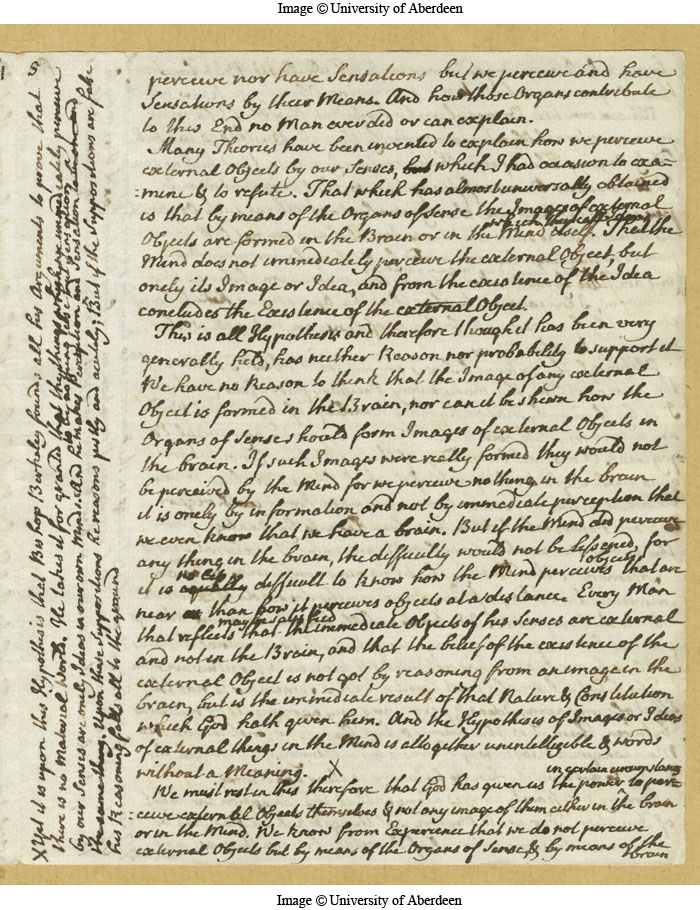 Image © University of Aberdeen
5
perceive nor have Sensations but we perceive and have
Sensations by their Means. And how those Organs contribute
to this End no Man ever did or can explain.
Many Theories have been invented to explain how we perceive
external Objects by our Senses, but which I had occasion to exa-
:mine & to refute. That which has almost universally obtained
is that by means of the Organs of Sense the Images of external
Objects are formed in the Brain or in the Mind itself. That the
Mind does not immediately perceive the external Object, but
onely its Image or Idea, and from the existence of the Idea
concludes the Existence of the external Object.
This is all Hypothesis and therefore though it has been very
generally held, has neither Reason nor probability to support it
We have no Reason to think that the Image of any external
Object is formed in the Brain, nor can it be shewn how the
Organs of Sense should form Images of external Objects in
the brain. If such Images were really formed they would not
be perceived by the Mind for we perceive nothing in the brain
it is onely by information and not by immediate perception that
we even know that we have a brain. But if the Mind did perceive
any thing in the brain, the difficulty would not be lessened, for
it is no less equally difficult to know how the Mind perceives objects that are
near than how it perceives objects at a distance. Every Man
that reflects may be satisfied that the immediate Objects of his Senses are external
and not in the Brain, and that the belief of the existence of the
external Object is not got by reasoning from an image in the
brain, but is the immediate result of that Nature & Constitution
which God hath given him. And the Hypothesis of Images or Ideas
of external things in the Mind is altogether unintelligible & words
without a Meaning. X
We must rest in this therefore that God has given us in certain circumstances the power to per-
:ceive external Objects themselves & not any image of them either in the brain
or in the Mind. We know from Experience that we do not perceive
external Objects but by means of the Organs of Sense, & by means of the
brain
X Yet it is upon this Hypothesis that Bishop Berkeley founds all his Arguments to prove that
there is no Material World. He takes it for granted that the things which we immediately perceive
by our Senses are onely Ideas in our own Mind. And he makes Perception and Sensation to be one and
the same thing. Upon these Suppositions he reasons justly and acutely; But if the Suppositions are false
his Reasoning falls all to the ground
Image © University of Aberdeen